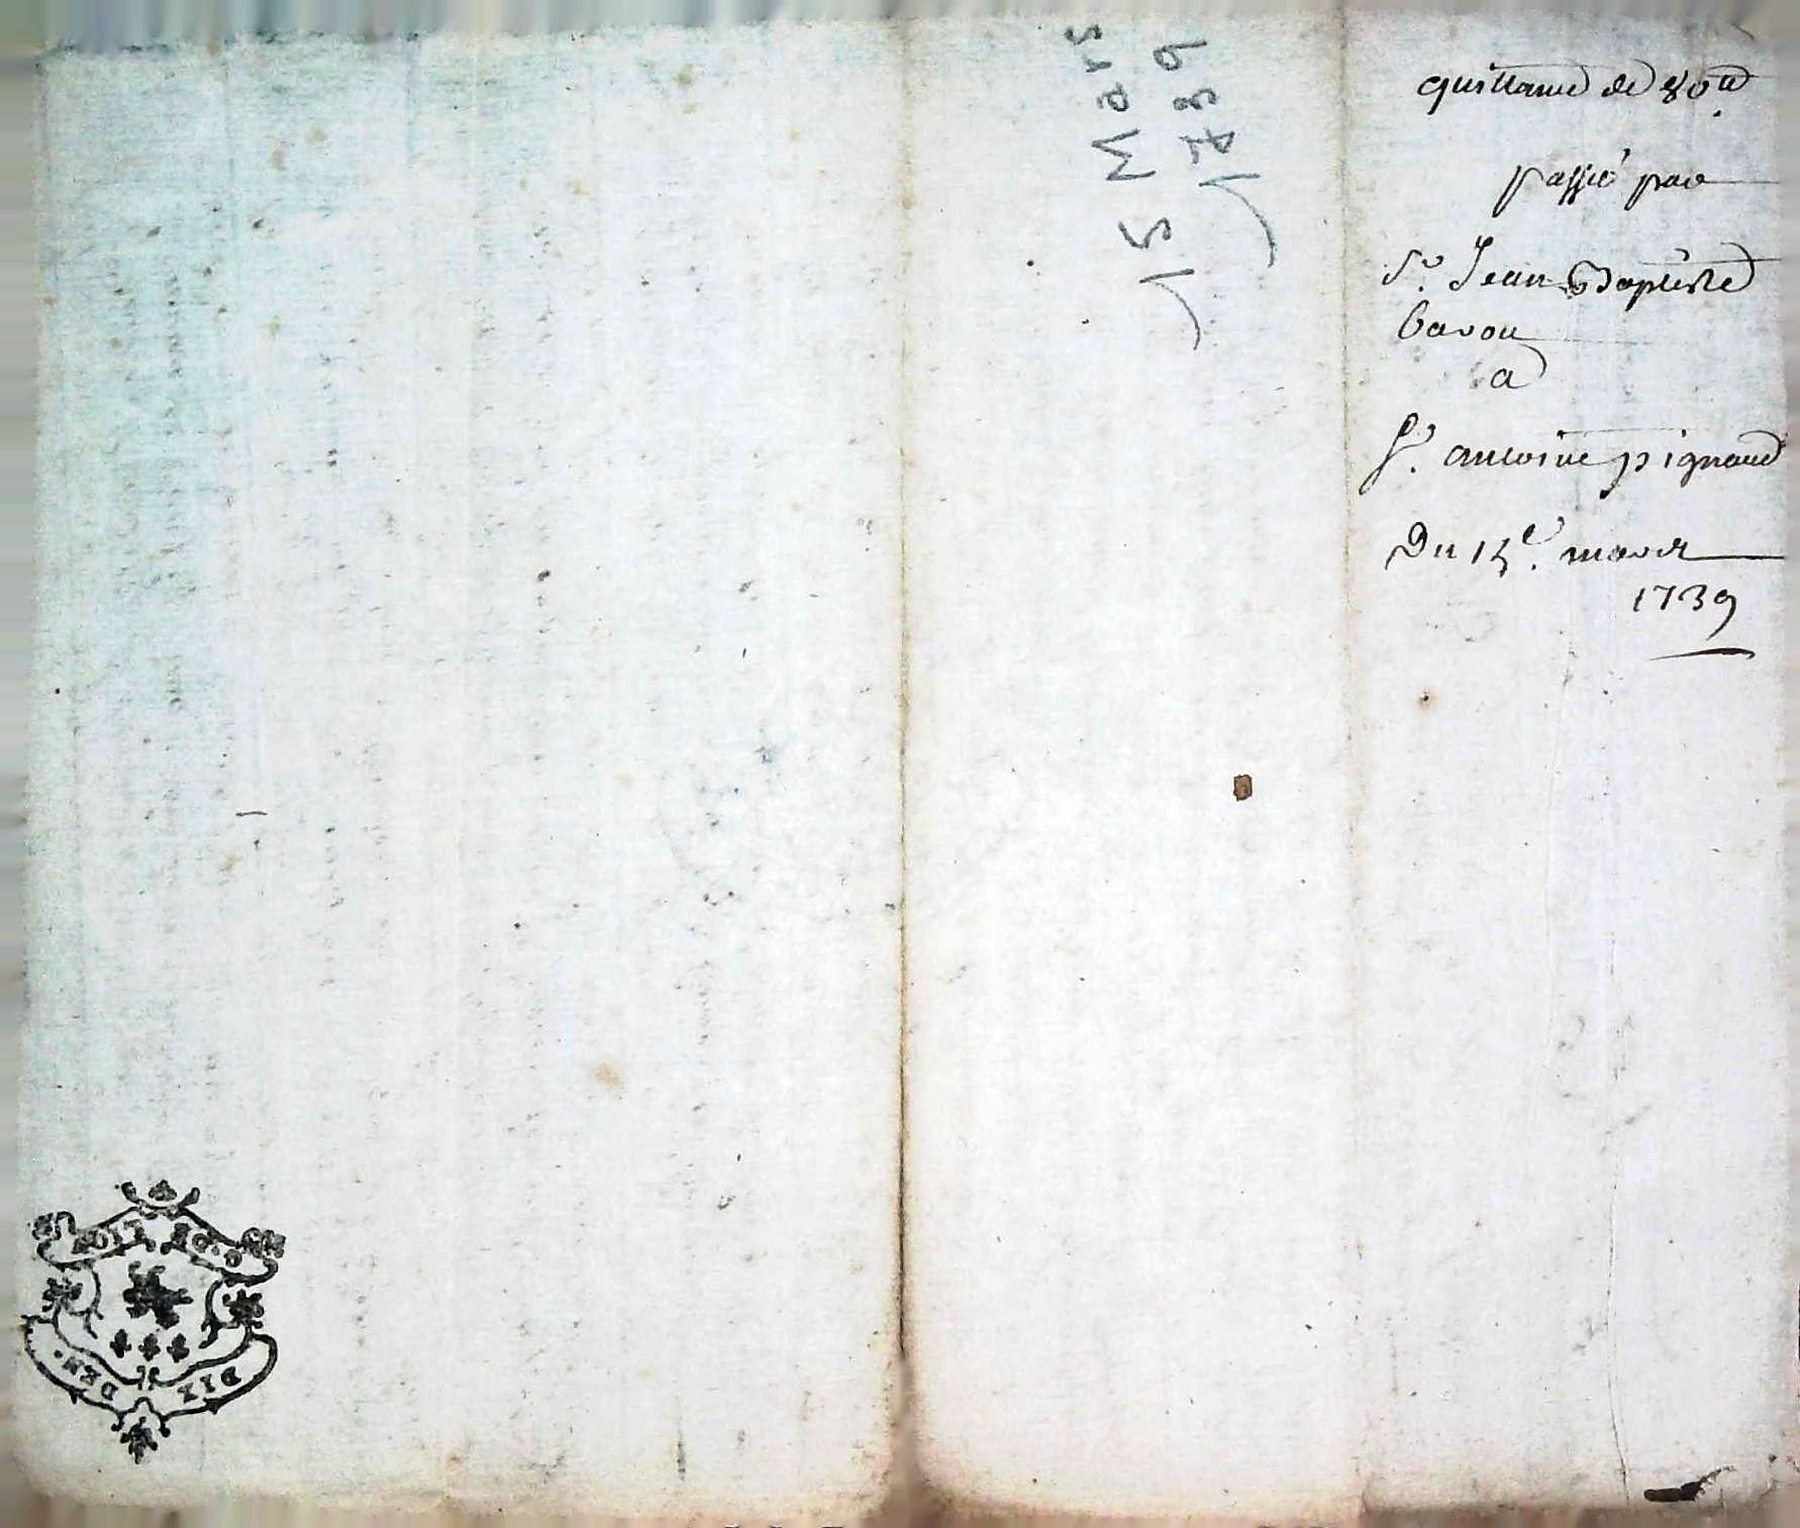 quittance de 80tt
passée par
Sr. Jean Baptiste
Bavou
a
Sr. antoine pignaud
Du 15e. mars
1739
15 Mars
1739
DIX DEN.